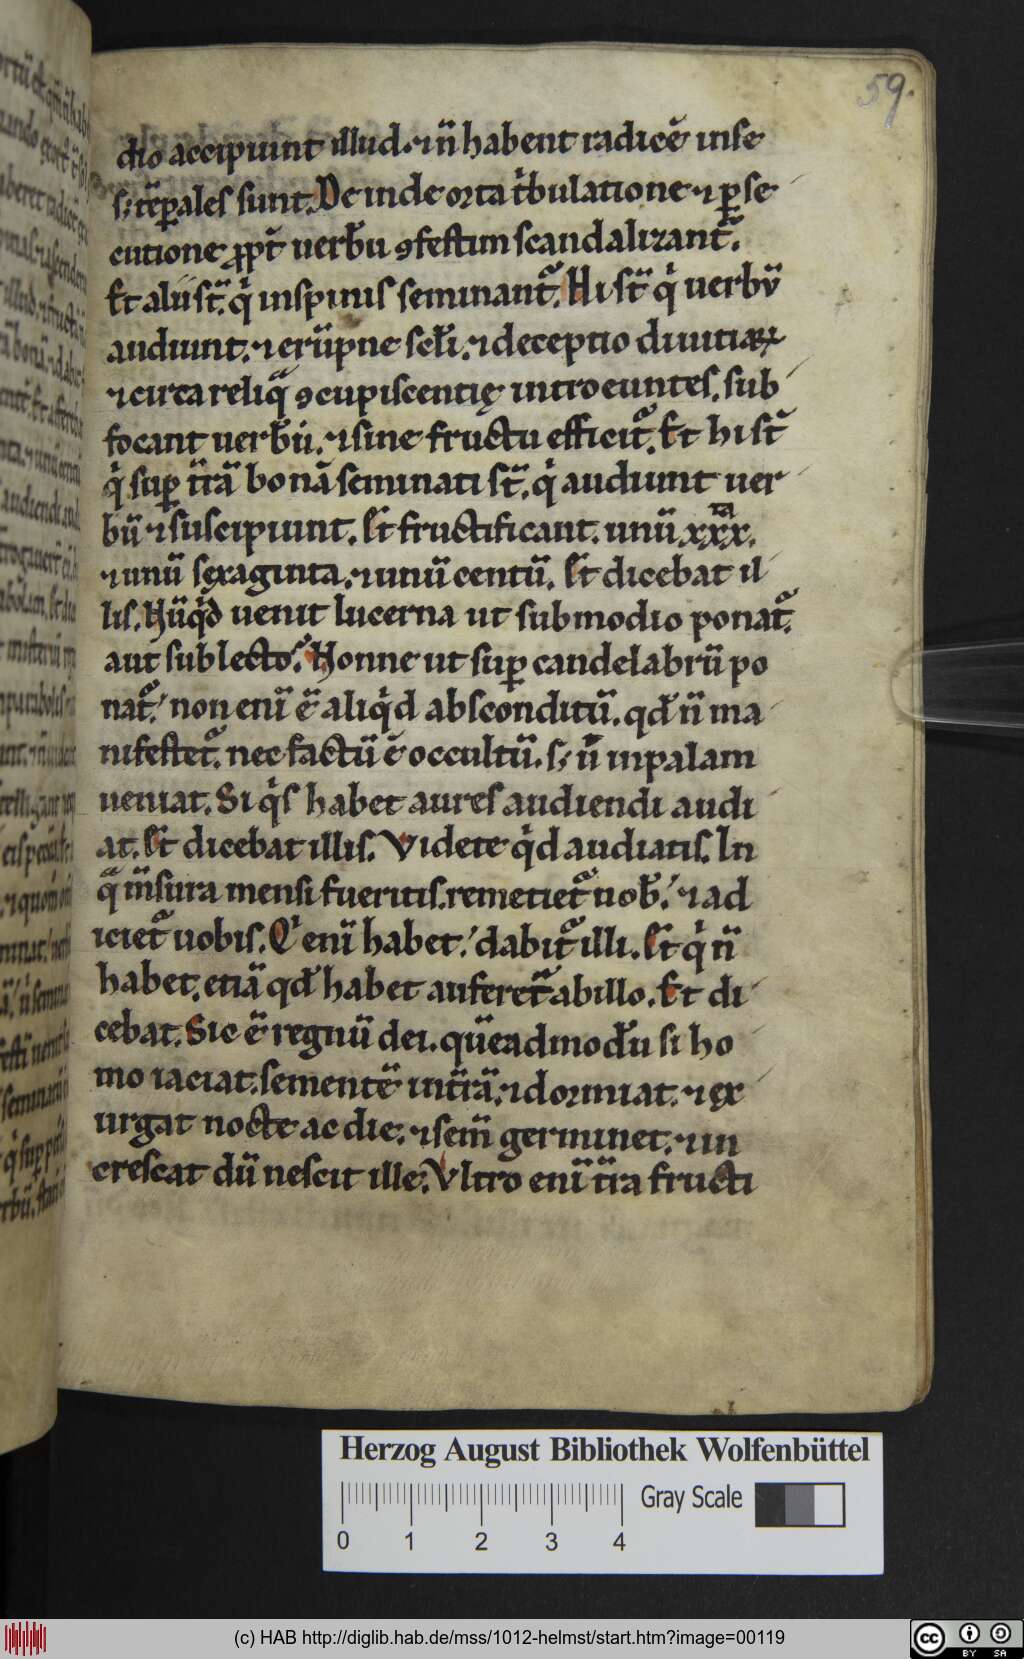 59.
dio accipiunt illud. ⁊ n̄ habent radicē in se
s; tēꝑales sunt. Deinde orta t'bulatione ⁊ ꝑse
cutione ꝓpt̄ uerbū ꝯfestim scandalizant᷑.
Et alii st̄. q̇ in spinis seminant᷑. Hi st̄ q̇ uerbū
audiunt. ⁊ erūpne sc̄li. ⁊ deceptio diuitiaꝝ
⁊ circa reliq̄ ꝯcupiscentię introeuntes. sub
focant uerbū. ⁊ sine fructu efficit᷑. Et hi st̄
q̇ suꝑ t̄rā bonā seminati st̄. q̇ audiunt uer
bū ⁊ suscipiunt. Et fructificant. unū xxx.
⁊ unū sęxaginta. ⁊ unū centū. Et dicebat il
lis. Nūq̇d uenit lucerna ut sub modio ponat᷑.
aut sub lecto? Nonne ut suꝑ candelabrū po
nat᷑? non enī ē aliq̇d absconditū. qd̄ n̄ ma
nifestet᷑. nec factū ē occultū. s; ū in palam
ueniat. Si q̇s habet aures audiendi audi
at. Et dicebat illis. Videte q̇d audiatis. In
q̄ m̄sura mensi fueritis. remetiet᷑ uob̄. ⁊ ad
iciet᷑ uobis. Q' enī habet. dabit᷑ illi. Et q̇ n̄
habet. etiā qd̄ habet auferet᷑ ab illo. Et di
cebat. Sic ē regnū dei. quēadmodū si ho
mo iaciat sementē in t̄rā. ⁊ dormiat. ⁊ ęx
urgat nocte ac die. ⁊ sem̄ germinet. ⁊ in
crescat dū nescit ille. Vltro enī t̄ra fructi
Herzog August Bibliothek Wolfenbüttel
Gray Scale
0 1 2 3 4
(c) HAB http://diglib.hab.de/mss/1012-helmst/start.htm?image=00119
cc BY SA